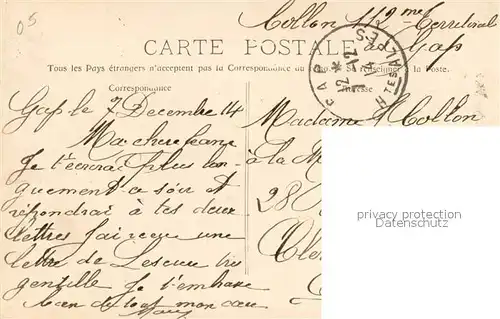 05
Collon 112 me Territorial
CARTE POSTALE à Gap
Tous les Pays étrangers n'acceptent pas la Correspondance au Se renseigner à la Poste.
Correspondance
GAP
HTES ALPES
Gap le 7 Decembre 14
Ma chere Jeane
Je t'écrirai plus lon
guement ce soir et
répondrai à tes deux
lettres j'ai reçu une
lettre de Lescure très
gentille Je t'embrasse
bien de tout mon cœur
Madame Collon
à la M
28
privacy protection
Datenschutz